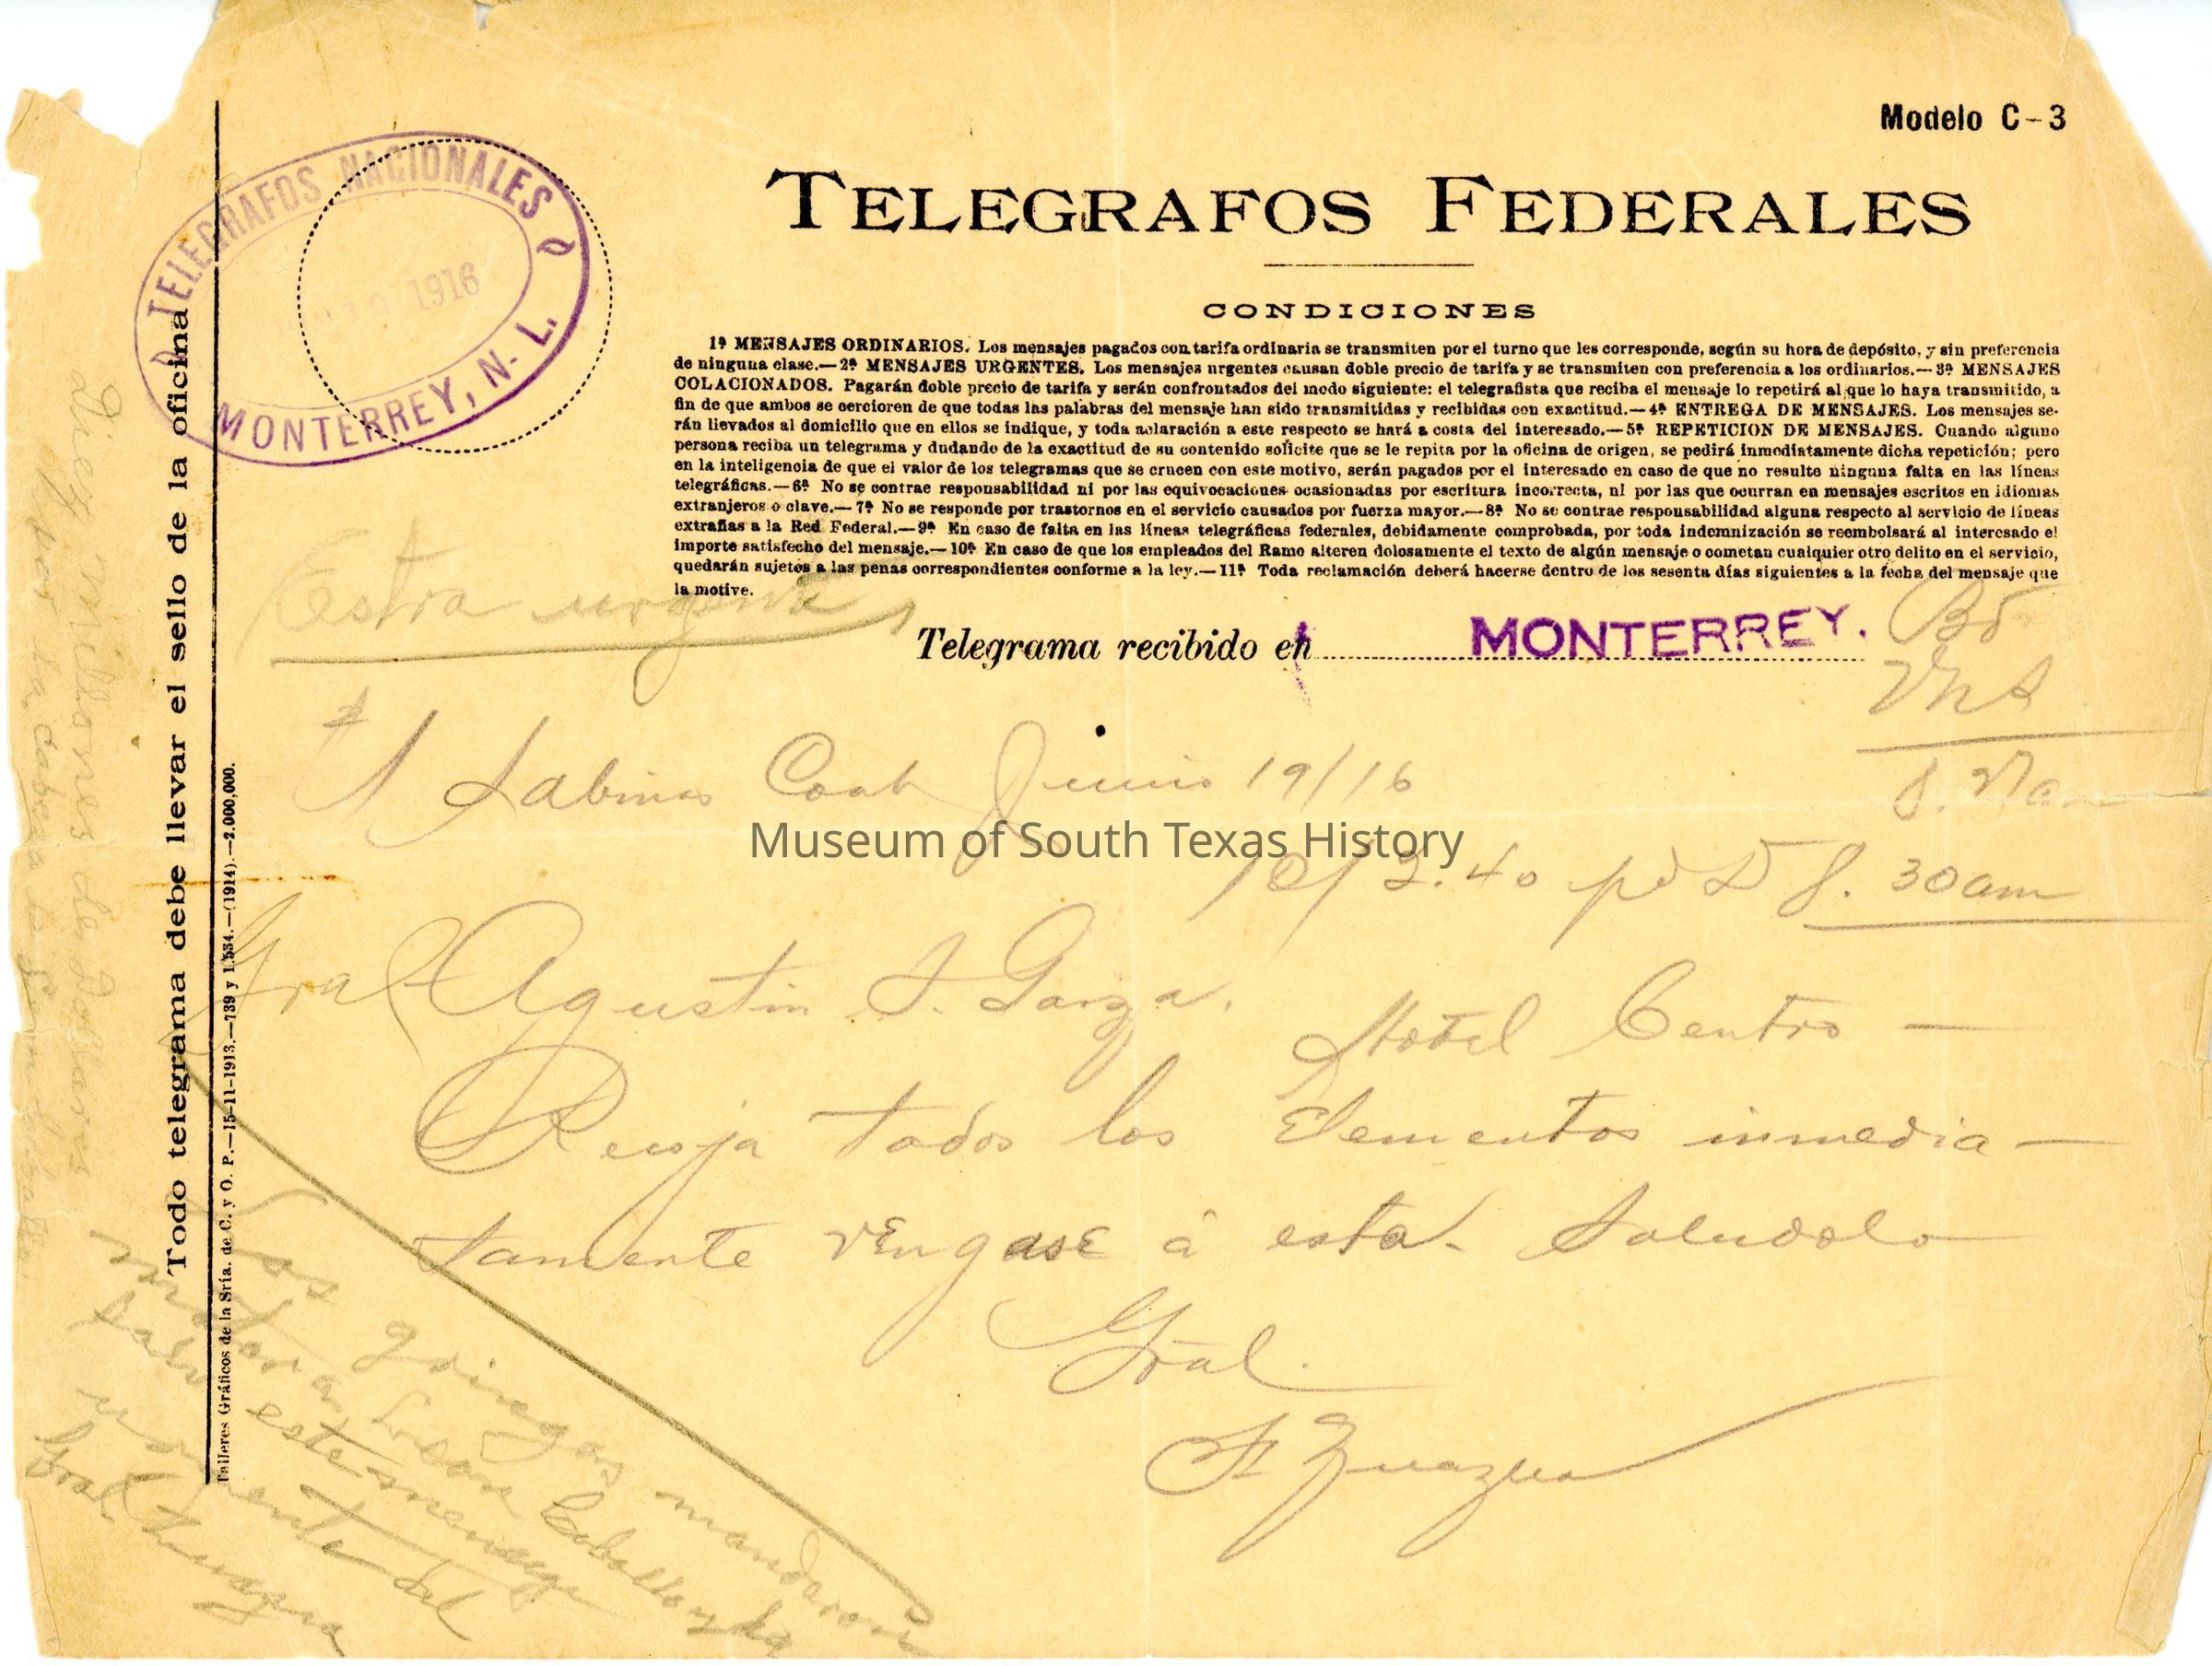 Modelo C-3
TELEGRAFOS FEDERALES
TELEGRAFOS NACIONALES
1916
MONTERREY, N. L.
CONDICIONES
1ª MENSAJES ORDINARIOS. Los mensajes pagados con tarifa ordinaria se transmiten por el turno que les corresponde, según su hora de depósito, y sin preferencia
de ninguna clase.—2ª MENSAJES URGENTES. Los mensajes urgentes causan doble precio de tarifa y se transmiten con preferencia a los ordinarios.—3ª MENSAJES
COLACIONADOS. Pagarán doble precio de tarifa y serán confrontados del modo siguiente: el telegrafista que reciba el mensaje lo repetirá al que lo haya transmitido, a
fin de que ambos se cercioren de que todas las palabras del mensaje han sido transmitidas y recibidas con exactitud.—4ª ENTREGA DE MENSAJES. Los mensajes se-
rán llevados al domicilio que en ellos se indique, y toda aclaración a este respecto se hará a costa del interesado.—5ª REPETICION DE MENSAJES. Cuando alguno
persona reciba un telegrama y dudando de la exactitud de su contenido solicite que se le repita por la oficina de origen, se pedirá inmediatamente dicha repetición; pero
en la inteligencia de que el valor de los telegramas que se crucen con este motivo, serán pagados por el interesado en caso de que no resulte ninguna falta en las líneas
telegráficas.—6ª No se contrae responsabilidad ni por las equivocaciones ocasionadas por escritura incorrecta, ni por las que ocurran en mensajes escritos en idiomas
extranjeros o clave.—7ª No se responde por trastornos en el servicio causados por fuerza mayor.—8ª No se contrae responsabilidad alguna respecto al servicio de líneas
extrañas a la Red Federal.—9ª En caso de falta en las líneas telegráficas federales, debidamente comprobada, por toda indemnización se reembolsará al interesado el
importe satisfecho del mensaje.—10ª En caso de que los empleados del Ramo alteren dolosamente el texto de algún mensaje o cometan cualquier otro delito en el servicio,
quedarán sujetos a las penas correspondientes conforme a la ley.—11ª Toda reclamación deberá hacerse dentro de los sesenta días siguientes a la fecha del mensaje que
la motive.
Estra urgente
Telegrama recibido en MONTERREY.
# 1 Sabinas Coah Junio 19/16
10/2.40 pd D 8.30am
Gral Agustin S. Garza.
Hotel Centro —
Recoja todos los Elementos inmedia-
tamente vengase á esta. Saludolo
Gral.
F Zuazua
Todo telegrama debe llevar el sello de la oficina
Talleres Gráficos de la Sría. de C. y O. P.—15-11-1913.—739 y 1,534.—(1914).—2.000,000.
Diez millones de Dollares
por la cabeza
Los gringos mandaron
este mensaje
Gral Zuazua
Museum of South Texas History